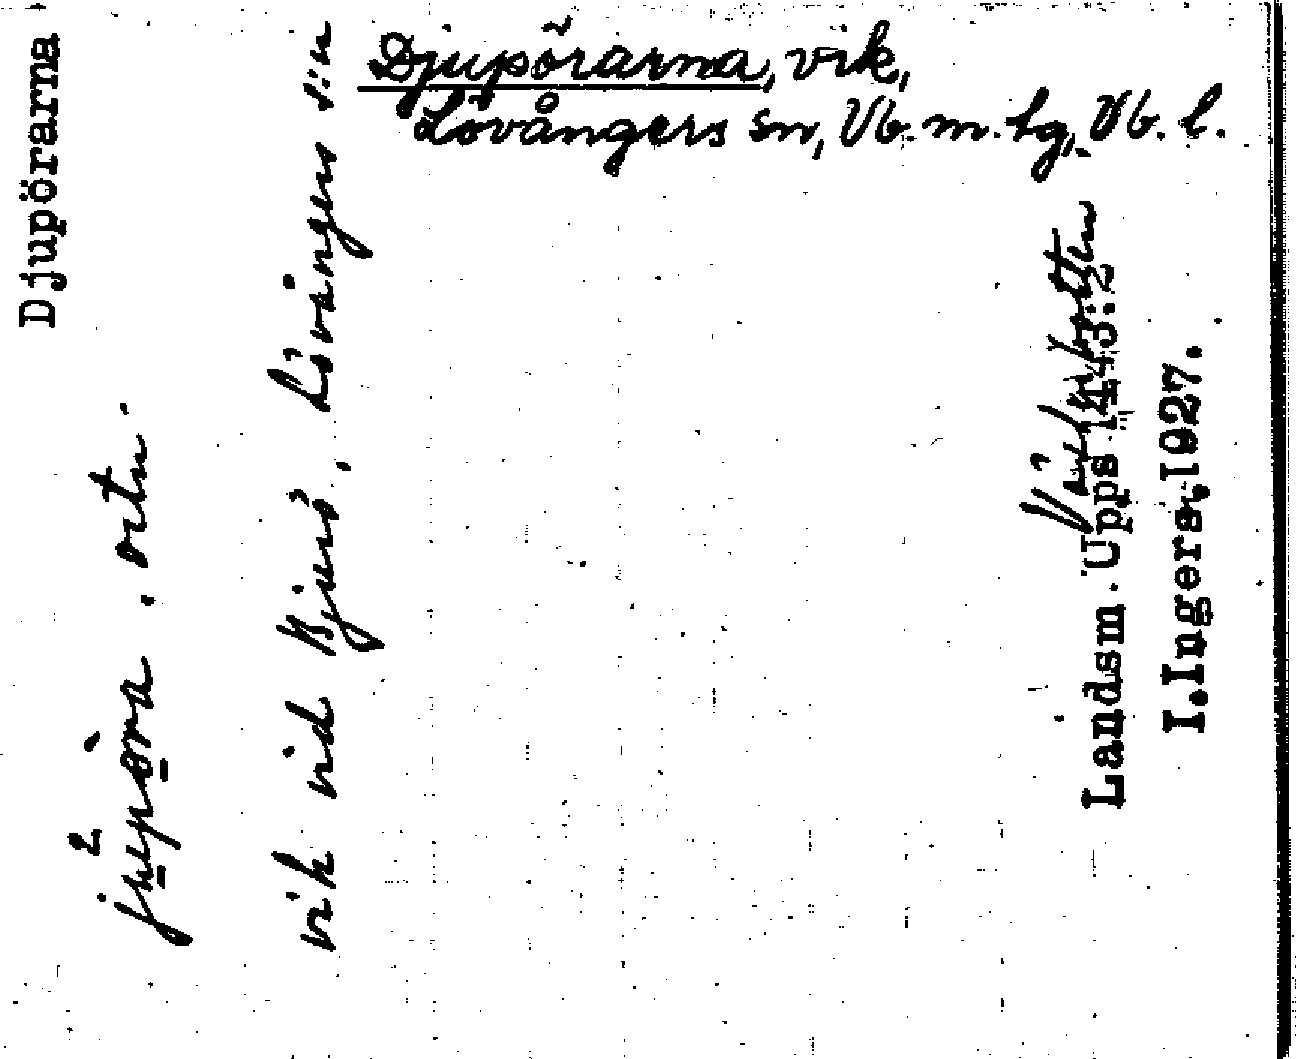 Djupörarna, vik,
Lövångers sn, Vb. m. tg, Vb. l.
Djupörarna
vik vid Bjurö, Lövångers s:n
Västerbotten
Landsm. Upps 1443:2
I.Ingers,1927.